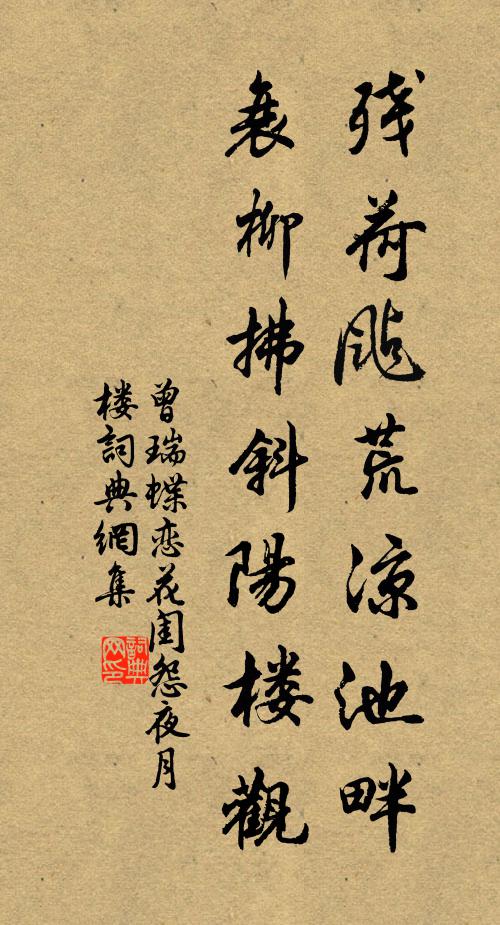 残荷飐荒凉池畔
衰柳拂斜陽楼觀
曾瑞蝶恋花闺怨夜月
楼詞典網集
詞典网印